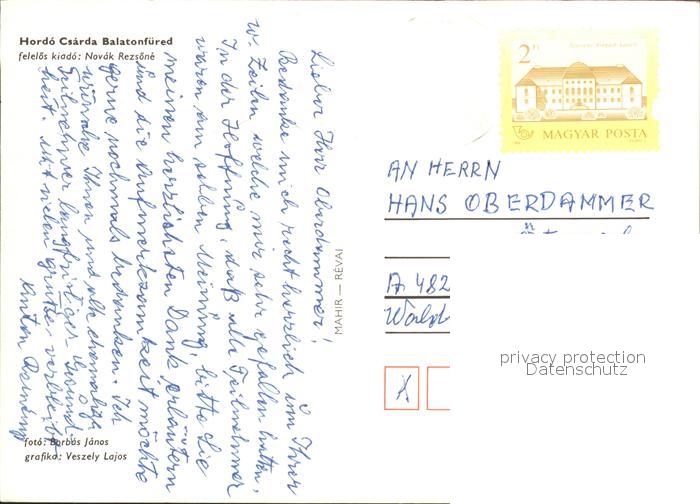 Hordó Csárda Balatonfüred
felelős kiadó: Novák Rezsőné
Lieber Herr Oberdammer!
Bedanke mich recht herzlich um Ihrer
w. Zeilen welche mir sehr gefallen hatten,
In der Hoffnung, daß alle Teilnehmer
waren am selben Meinung, bitte Sie
meinen herzlichsten Dank erläutern
und die Aufmerksamkeit möchte
gerne nochmals bedanken. Ich
wünsche Ihnen und alle ehemalige
Teilnehmer langfristiger Gesund-
heit mit vielen grüße, verbleibt
Anton
fotó: Barbás János
grafika: Veszely Lajos
MAHIR — RÉVAI
2 Ft
MAGYAR POSTA
AN HERRN
HANS OBERDAMMER
A 482
privacy protection
Datenschutz